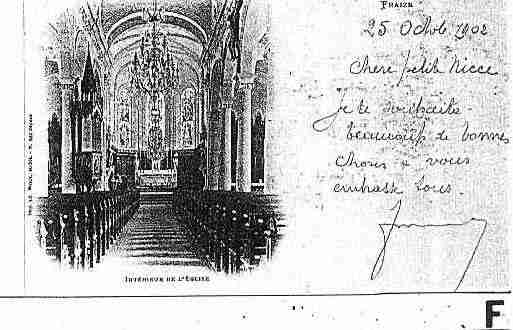 FRAIZE
25 Octob 1902
Chere petite Niece
Je te souhaite
beaucoup de bonnes
choses & vous
embrasse tous.
INTÉRIEUR DE L'ÉGLISE
F